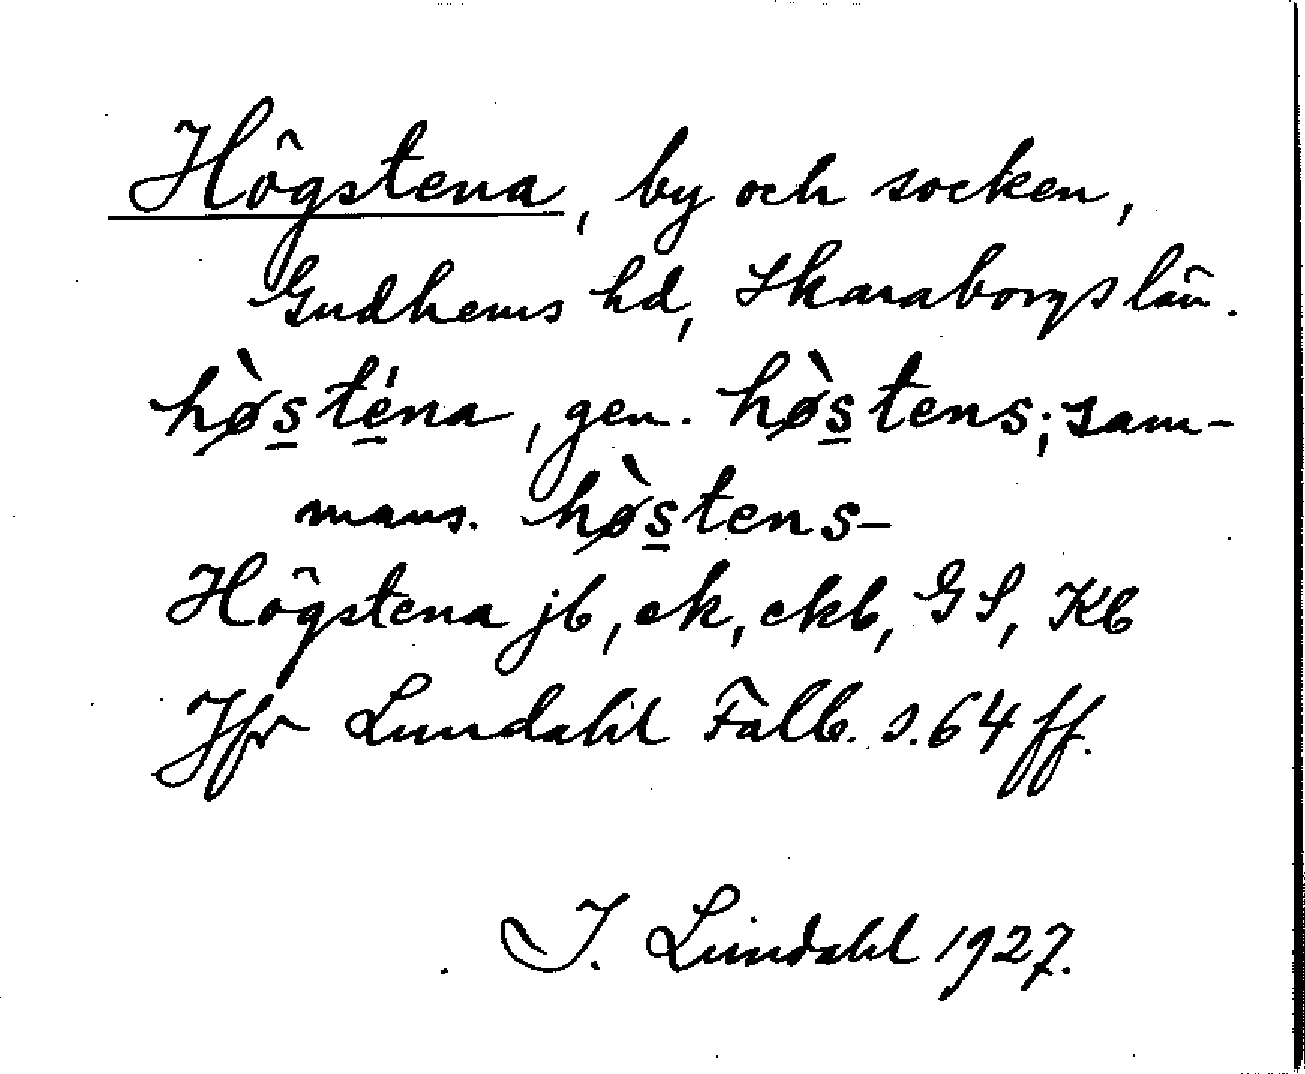 Högstena, by och socken,
Gudhems hd, Skaraborgs län.
hø̀s̲té̲na, gen. hø̀s̲tens; sam-
mans. hø̀s̲tens-
Högstena jb, ek, ekb, GS, Kb
Jfr Lundahl Falb. s. 64 ff.
I. Lundahl 1927.